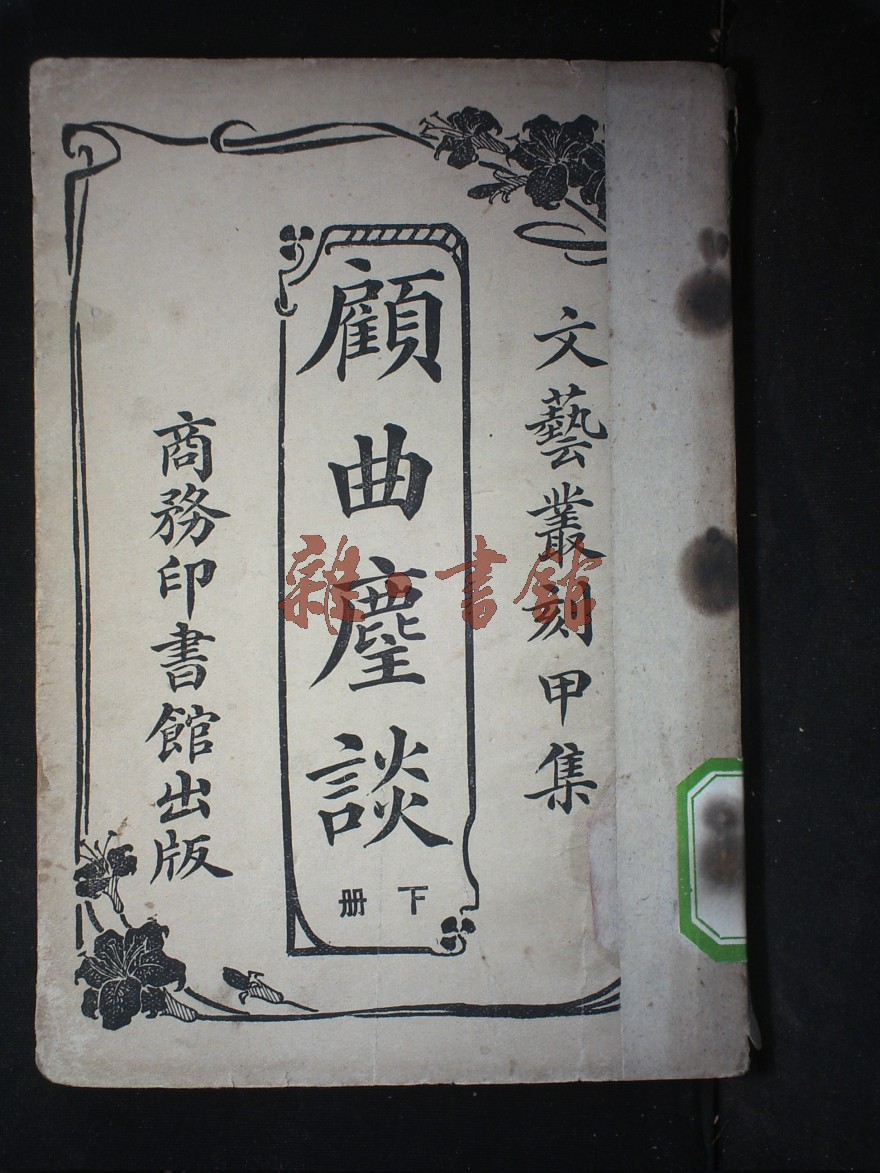 文藝叢刻甲集
顧曲麈談
下册
商務印書館出版
雜·書館